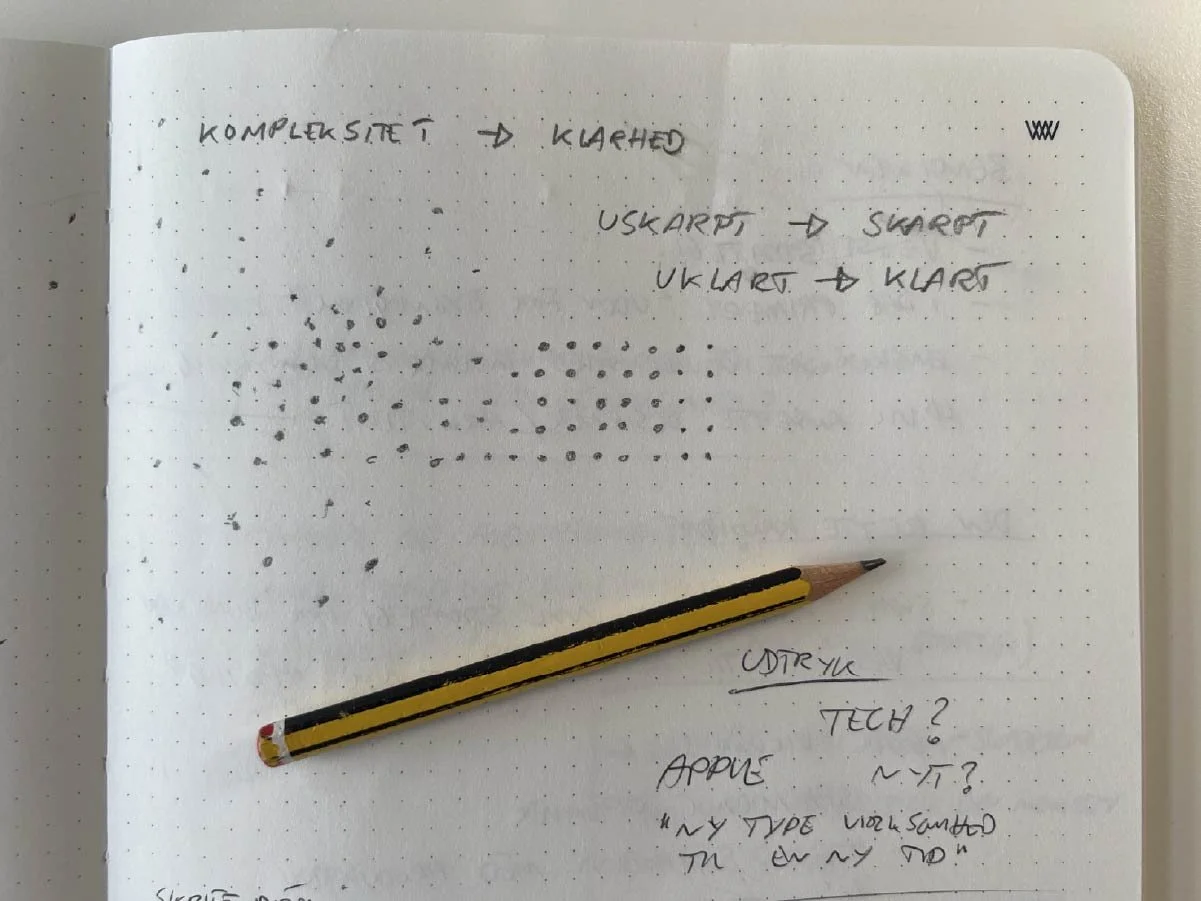 KOMPLEKSITET → KLARHED
USKARPT → SKARPT
UKLART → KLART
UDTRYK
TECH?
APPLE NYT?
"NY TYPE VIRKSOMHED
TIL EN NY TID"